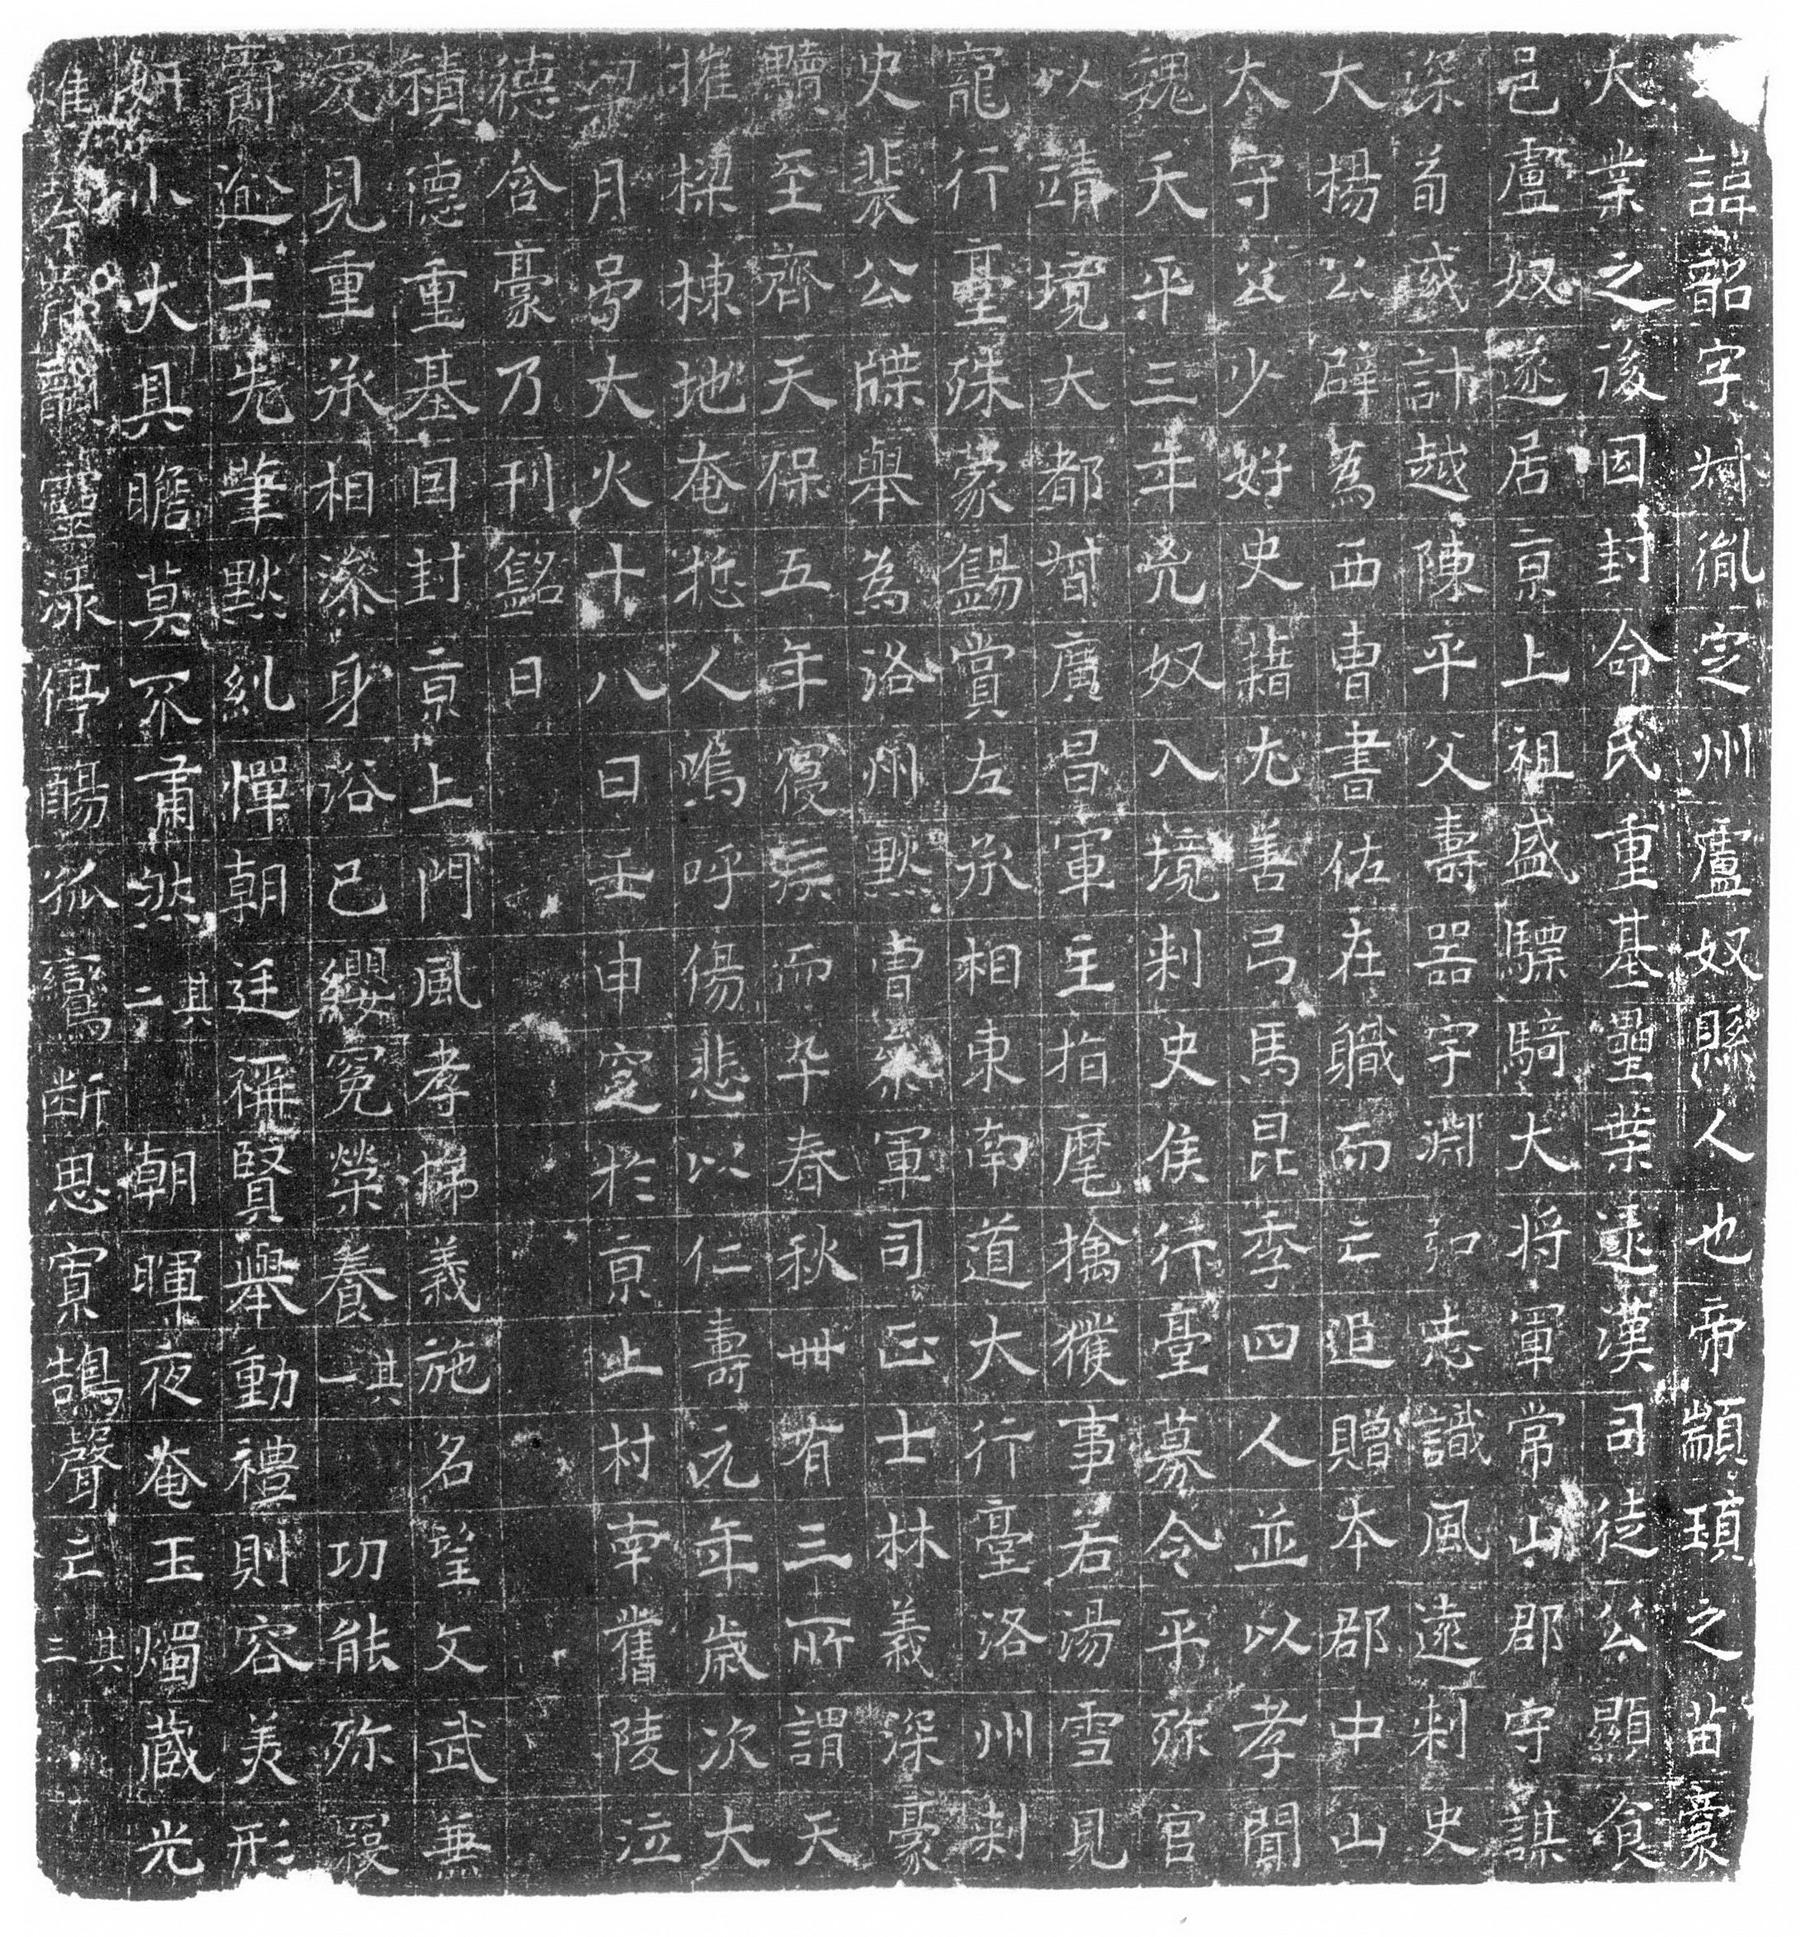 諱韶字斌胤定州盧奴縣人也帝顓頊之苗裔
大業之後因封命民重基壘葉遠漢司徒公顯食
邑盧奴遂居京上祖盛驃騎大將軍常山郡守謀
深荀彧計越陳平父壽器宇淵弘志識風遠刺史
大楊公辟為西曹書佐在職而亡追贈本郡中山
太守公少好史籍尤善弓馬昆季四人並以孝聞
魏天平三年兇奴入境刺史侯行臺募令平殄官
以靖境大都督廣昌軍主指麾擒獲事若湯雪見
寵行臺殊蒙賜賞左丞相東南道大行臺洛州刺
史裴公牒舉為洛州默曹參軍司正士林義深豪
黷至齊天保五年寢疾而卒春秋卌有三所謂天
摧樑棟地奄悊人嗚呼傷悲以仁壽元年歲次大
梁月旅大火十八日壬申窆於京止村南舊陵泣
德含豪乃刊銘曰
積德重基因封京上門風孝悌義施名望文武兼
愛見重承相滌身浴己纓冕榮養其一功能殄寇
爵逾士先筆默糺憚朝廷稱賢舉動禮則容美形
妍小大具瞻莫不肅然其二朝暉夜奄玉燭蔵光
停觴孤鸞断思寡鵠聲亡其三